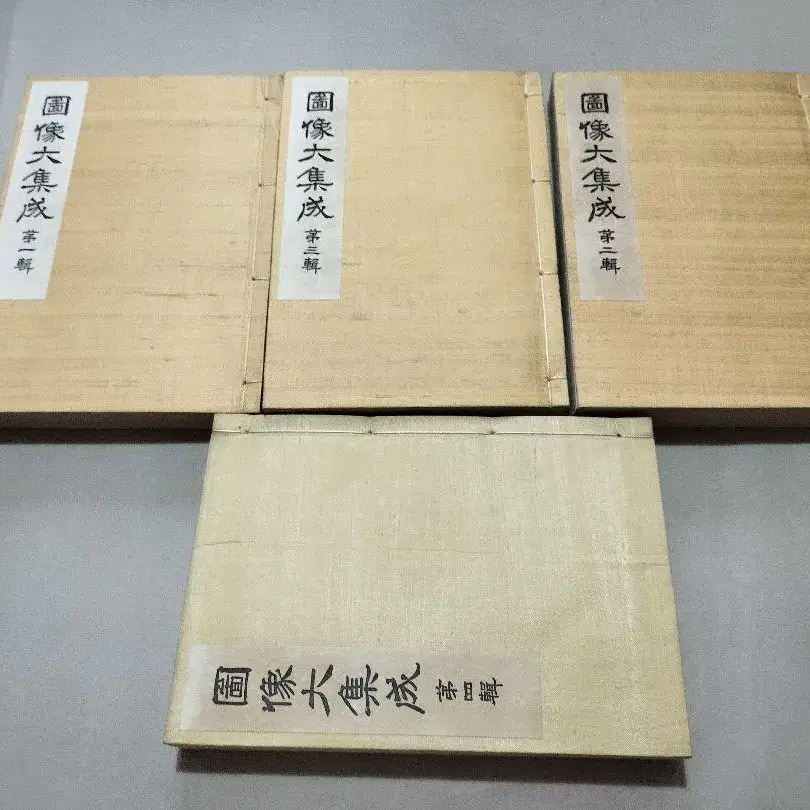 圖像大集成 第一輯
圖像大集成 第三輯
圖像大集成 第二輯
圖像大集成 第四輯